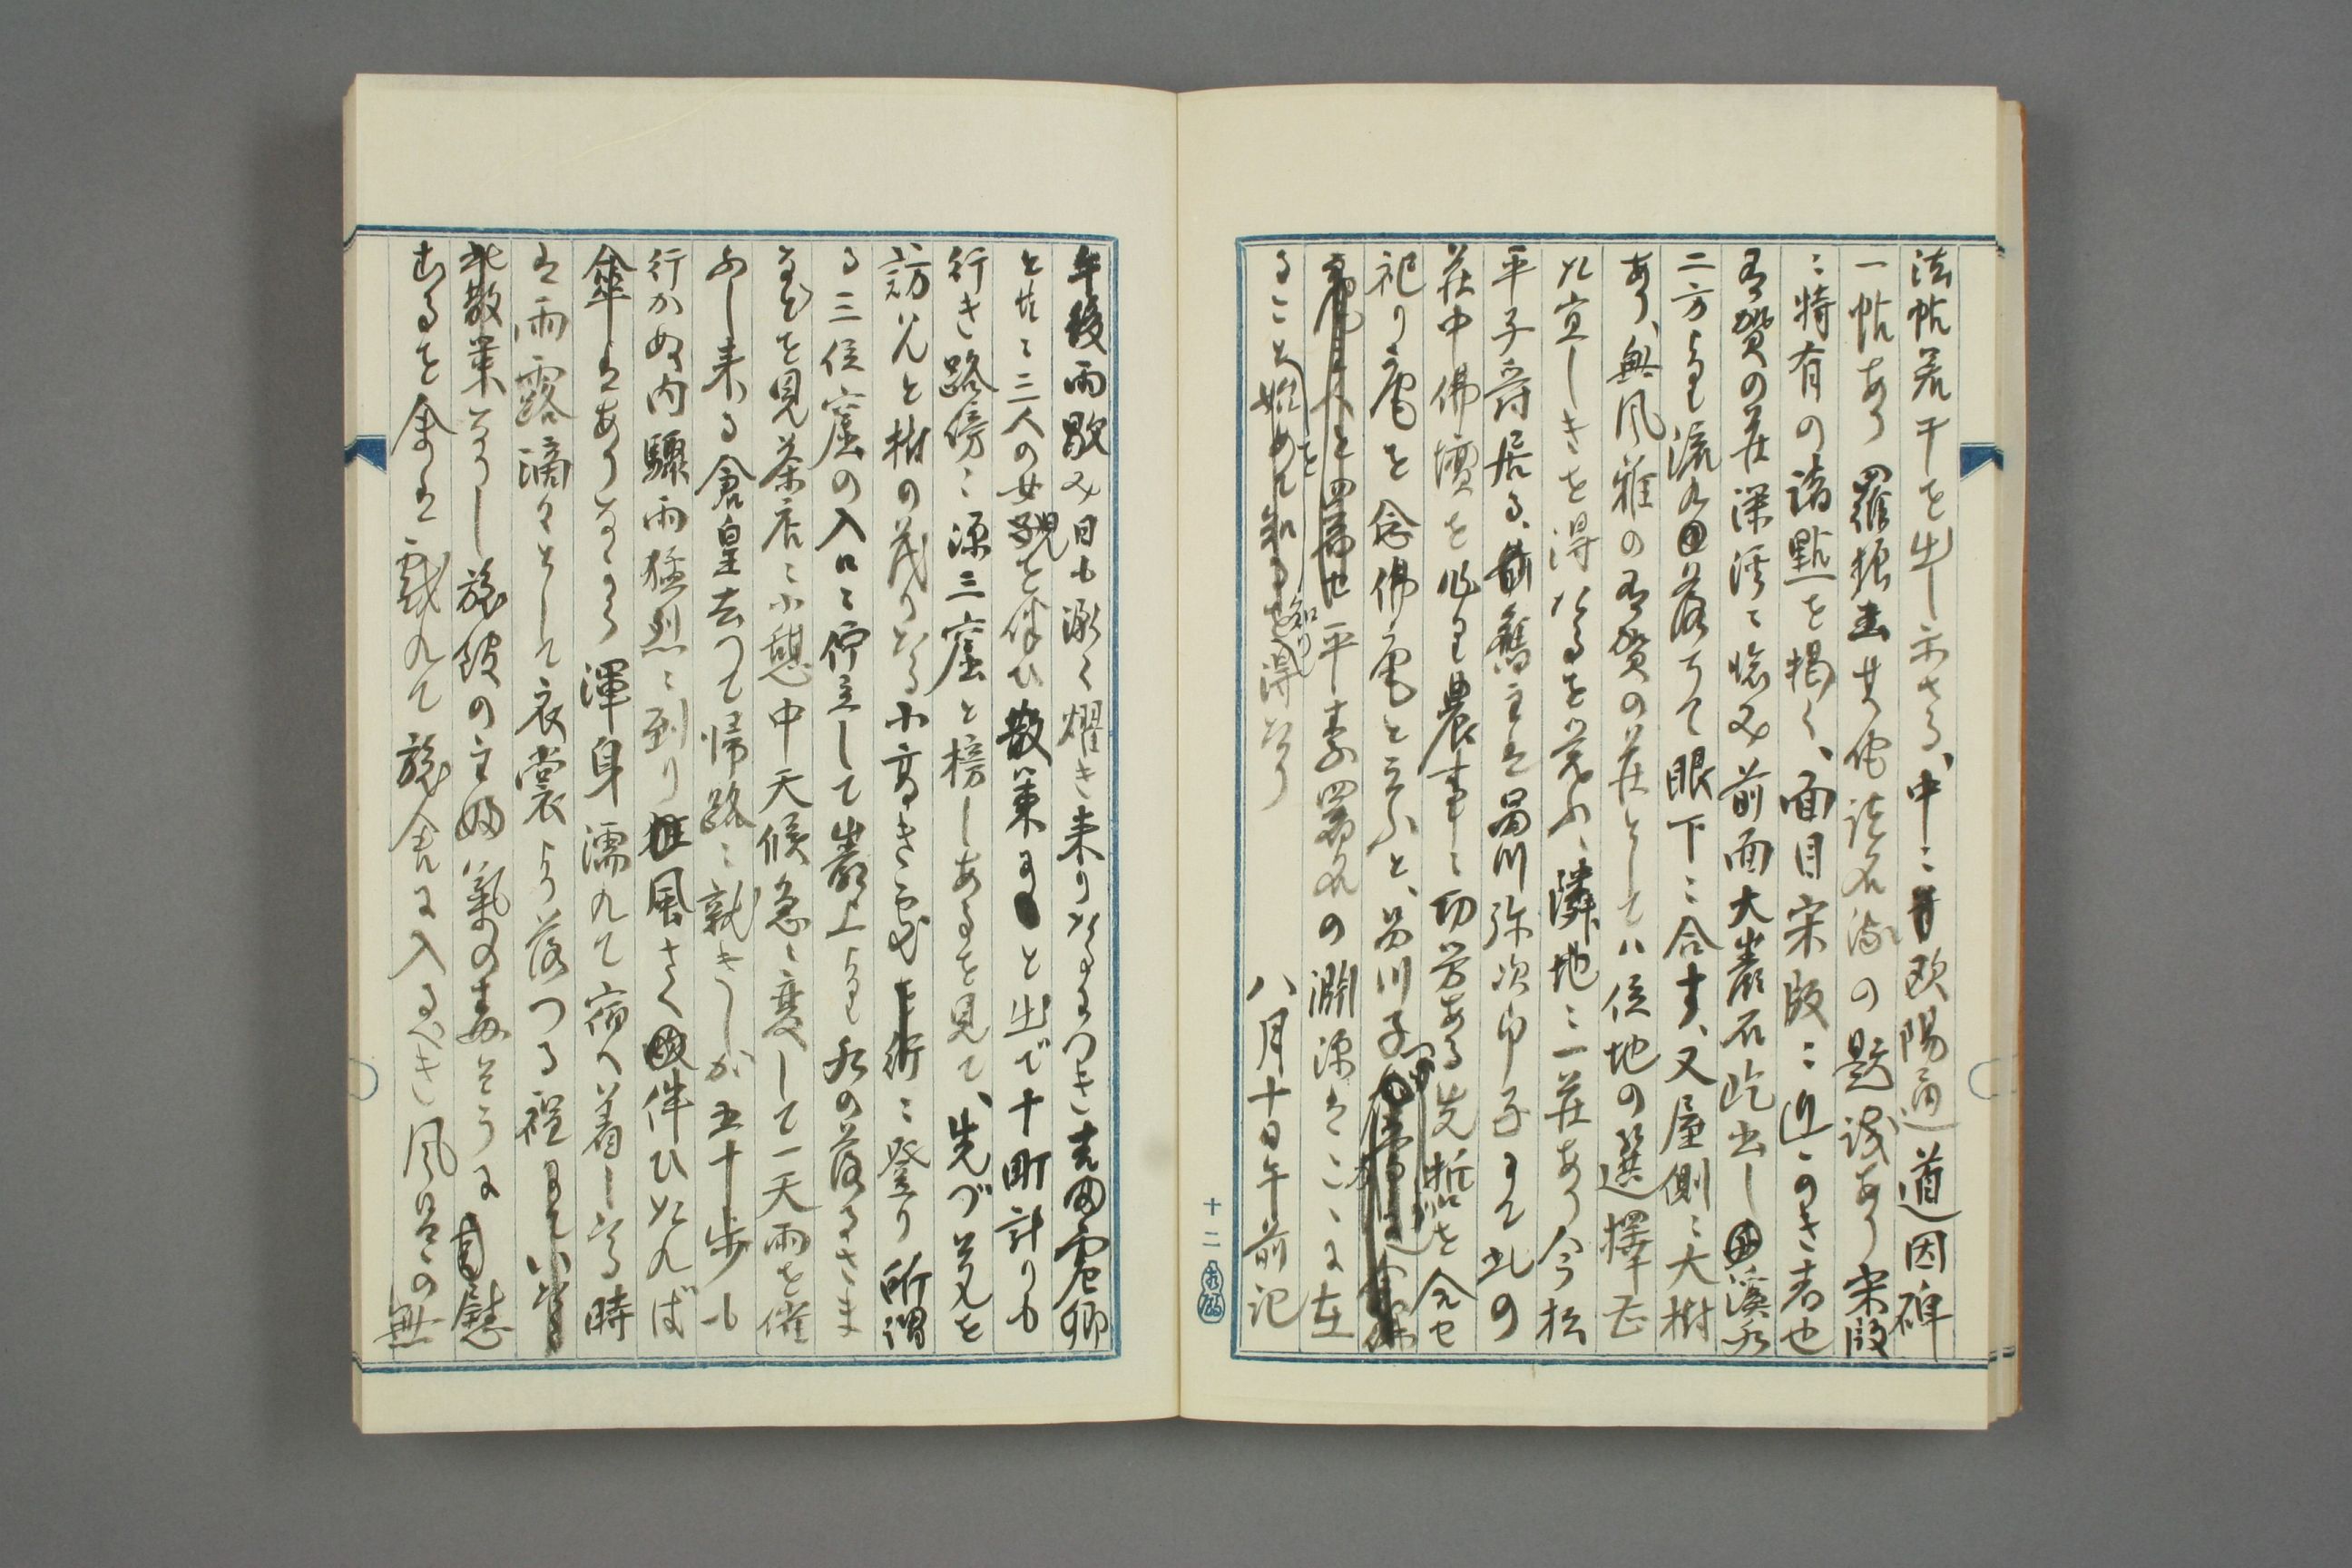 法帖若干を出し示さる、中に欧陽通道因碑
一帖あり 羅振玉其他諸名流の題識あり宋版
に特有の諸點を掲く、面目宋版に近きき者也
有賀の荘深渓に臨み前面大巌石屹出し溪水
二方より流れ落ちて眼下に合す、又屋側に大樹
あり、無風雅の有賀の荘としてハ位地の選擇甚
た宜しきを得たるを覚ふ、隣地に一荘あり今松
平子爵居る、舊主は品川弥次郎子にて此の
荘中佛壇を作り農事に功労ある先哲を合せ
祀り庵を念佛庵と云ふと、品川子
平素署名の淵源はこゝに在
ることを知り得たり
八月十日午前記
十二
午後雨歇み日も漸く燿き来りたるにつき吉田老卿
と共に三人の女児を伴ひ散策すと出で十町計りも
行き路傍に源三窟と榜しあるを見て、先づ覚を
訪はんと樹の茂りたる小高き処に登り所謂
る三位窟の入口に佇立して巌上より水の落るさま
などを見茶店に小憩中天候急に変して一天雨を催
ふし来る倉皇去つて帰路に就きしが五十歩も
行かぬ内驟雨猛烈に到り狂風さへ伴ひたれば
傘はありながら渾身濡れて宿へ着したる時
は雨露滴々として衣裳より落つる程
此散策なりし旅館の主婦氣の毒そうに自慰
むるを余は戯れて旅舎に入るべき風呂の無